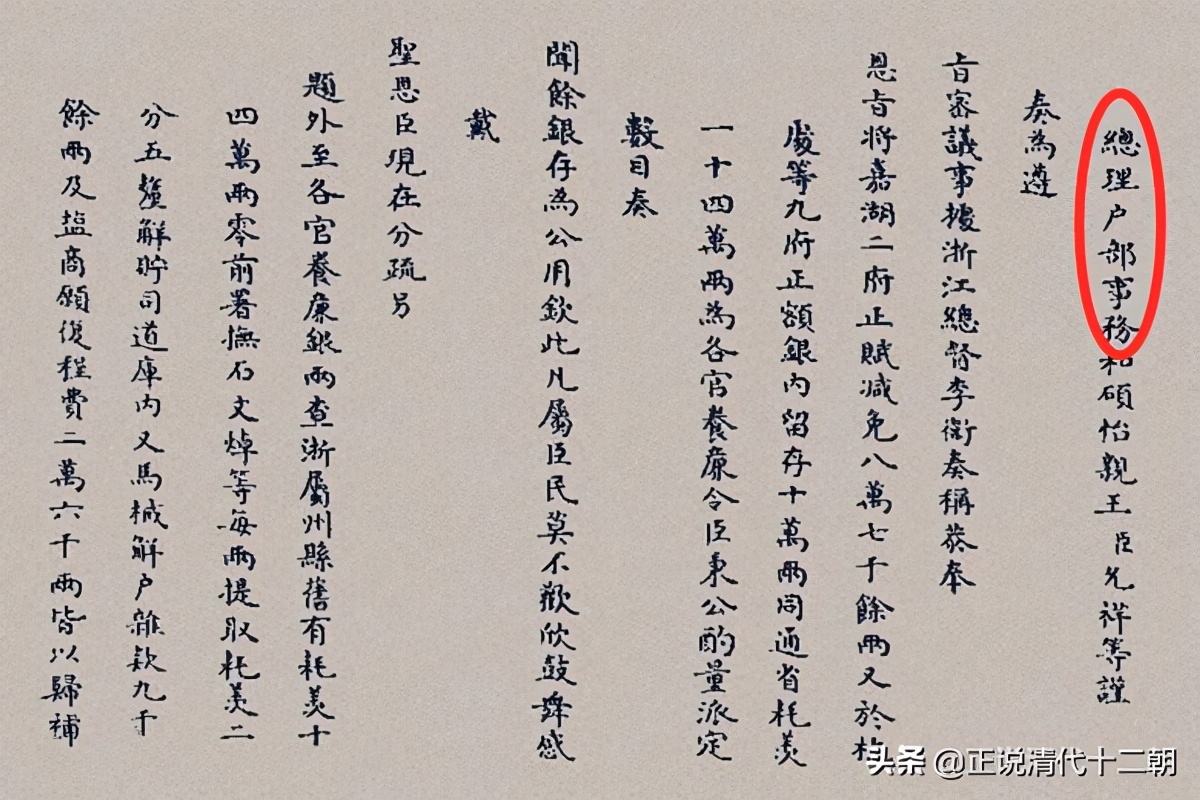 總理户部事務和碩怡親王臣允祥等謹
奏為遵
旨審議事據浙江總督李衛奏稱恭奉
恩旨將嘉湖二府正賦減免八萬七千餘兩又於杭
處等九府正額銀內留存十萬兩同通省耗羨
一十四萬兩為各官養廉令臣秉公酌量派定
數目奏
聞餘銀存為公用欽此凡屬臣民莫不歡欣鼓舞感
戴
聖恩臣現在分疏另
題外至各官養廉銀兩查浙屬州縣舊有耗羨十
四萬兩零前署撫石文焯等每兩提取耗羨二
分五釐解貯司道庫內又馬械解户雜款九千
餘兩及塩商願復程費二萬六千兩皆以歸補
头条 @正说清代十二朝